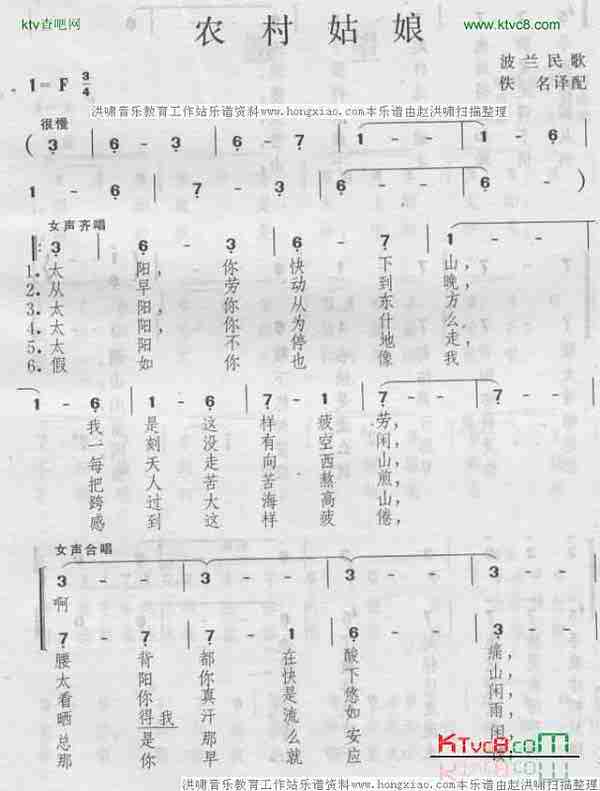 ktv查吧网
www.ktvc8.com
农村姑娘
波兰民歌
佚 名译配
1=F 3/4
洪啸音乐教育工作站乐谱资料www.hongxiao.com本乐谱由赵洪啸扫描整理
很慢
( 3 | 6 - 3 | 6 - 7 | 1 - - | 1 - -
1 - 6 | 7 - 3 | 6 - - | 6 - )
女声齐唱
3 | 6 - 3 | 6 - 7 | 1 - -
1.太 阳, 你 快 下 山,
2.从 早 劳 动 到 晚,
3.太 阳, 你 从 东 方
4.太 阳 你 为 什 么
5.太 阳 不 停 地 走
6.假 如 你 也 像 我
1 - 6 | 1 - 6 | 7 - 6 | 7 - - | 7 - -
我 是 这 样 疲 劳,
一 刻 没 有 空 闲,
每 天 走 向 西 山,
把 人 苦 苦 熬 煎,
跨 过 大 海 高 山,
感 到 这 样 疲 倦,
女声合唱
3 - - | 3 - - | 3 - - | 3 - -
啊
7 - 7 | 7 - 1 | 6 - - | 3 - -
腰 背 都 在 酸 痛,
太 阳 你 快 下 山,
看 你 真 是 悠 闲,
晒 得我 汗 流 如 雨,
总 是 那 么 安 闲,
那 你 早 就 应
KTvc8.com
洪啸音乐教育工作站乐谱资料www.hongxiao.com本乐谱由赵洪啸扫描整理